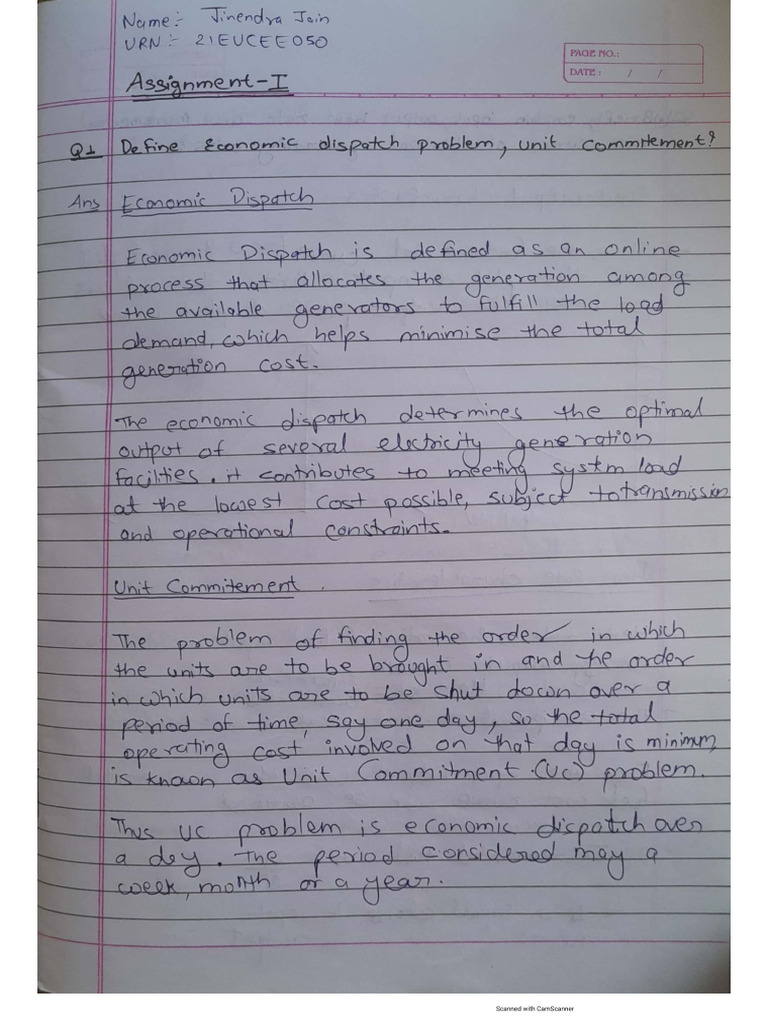 Name:- Jinendra Jain
URN:- 21EUCEE050
PAGE NO.:
DATE: / /
Assignment-I
Q1 Define Economic dispatch problem, unit commitement?
Ans Economic Dispatch
Economic Dispatch is defined as an online
process that allocates the generation among
the available generators to fulfill the load
demand, which helps minimise the total
generation cost.
The economic dispatch determines the optimal
output of several electricity generation
facilties. it contributes to meeting system load
at the lowest cost possible, subject to transmission
and operational constraints.
Unit Commitement.
The problem of finding the order in which
the units are to be brought in and the order
in which units are to be shut down over a
period of time, say one day, so the total
operating cost involved on that day is minimum,
is known as Unit Commitment (UC) problem.
Thus UC problem is economic dispatch over
a day. The period considered may a
week, month or a year.
Scanned with CamScanner